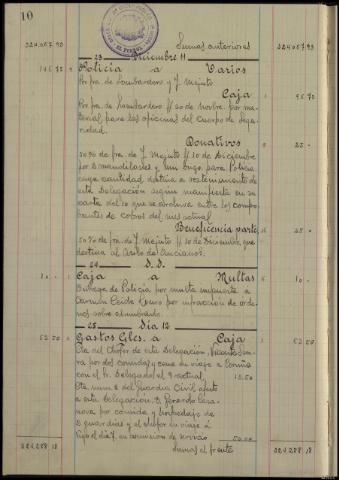 10
324.057.93 Sumas anteriores 324.057.93
23 Diciembre 11
Policía a Varios
Por fra. de Lombardero y J. Mejuto
Caja 95.70
Por fra. de Lombardero f/ 20 de Novbre. por ma-
terial para las oficinas del Cuerpo de Segu-
ridad.
Donativos 25.-
50% de fra. de J. Mejuto f/ 10 de Diciembre
por 2 mandilares y un buzo para Policía
cuya cantidad destina a sostenimiento de
esta Delegación según manifiesta en su
carta del 10 que se archiva entre los compro-
bantes de cobros del mes actual.
Beneficencia parte 25.-
50% de fra. de J. Mejuto f/ 10 de Diciembre que
destina al Asilo de Ancianos.
24 D. D.
10.- Caja a Multas 10.-
Entrega de Policía por multa impuesta a
Carmen por infracción de orde-
nes sobre alumbrado.
25 Dia 12
52.50 Gastos Gles. a Caja 52.50
Cta. del Chofer de esta Delegación,
por dos comidas y cama de viaje a Coruña
con el Sr. Delegado el 9 actual,
Cta. num 2 del Guardia Civil
a esta Delegación, D. Gerardo Casa-
nova por comida y hospedaje de
2 guardias y el chofer en viaje a
Vigo el día 7, en comision de servicio
324.288.18 Sumas al frente 324.288.18